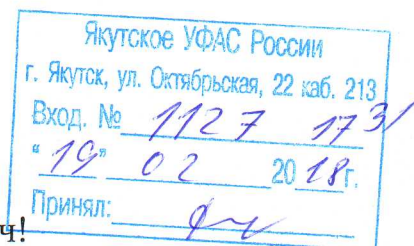 Якутское УФАС России
г. Якутск, ул. Октябрьская, 22 каб. 213
Вход. № 1127
“19” 02 2018г.
Принял:
ч!